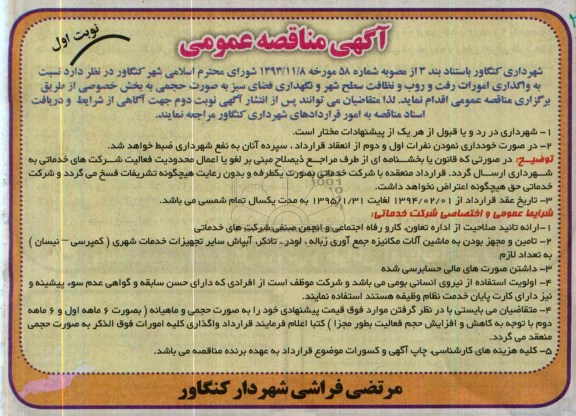 نوبت اول
آگهی مناقصه عمومی
شهرداری کنگاور باستناد بند ۳ از مصوبه شماره ۵۸ مورخه ۱۳۹۳/۱۱/۸ شورای محترم اسلامی شهر کنگاور در نظر دارد نسبت
به واگذاری امورات رفت و روب و نظافت سطح شهر و نگهداری فضای سبز به صورت حجمی به بخش خصوصی از طریق
برگزاری مناقصه عمومی اقدام نماید. لذا متقاضیان می توانند پس از انتشار آگهی نوبت دوم جهت آگاهی از شرایط و دریافت
اسناد مناقصه به امور قراردادهای شهرداری کنگاور مراجعه نمایند.
۱- شهرداری در رد و یا قبول از هر یک از پیشنهادات مختار است.
۲- در صورت خودداری نمودن نفرات اول و دوم از انعقاد قرارداد ، سپرده آنان به نفع شهرداری ضبط خواهد شد.
توضیح: در صورتی که قانون یا بخشنامه ای از طرف مراجع ذیصلاح مبنی بر لغو یا اعمال محدودیت فعالیت شرکت های خدماتی به
شهرداری ارسال گردد. قرارداد منعقده با شرکت خدماتی بصورت یکطرفه و بدون رعایت هیچگونه تشریفات فسخ می گردد و شرکت
خدماتی حق هیچگونه اعتراض نخواهد داشت.
۳- تاریخ عقد قرارداد از ۱۳۹۴/۰۲/۰۱ لغایت ۱۳۹۵/۱/۳۱ به مدت یکسال تمام شمسی می باشد.
شرایط عمومی و اختصاصی شرکت خدماتی:
۱-ارائه تائید صلاحیت از اداره تعاون، کار و رفاه اجتماعی و انجمن صنفی شرکت های خدماتی
۲- تامین و مجهز بودن به ماشین آلات مکانیزه جمع آوری زباله ، لودر ، تانکر، آبپاش سایر تجهیزات خدمات شهری ( کمپرسی – نیسان )
به تعداد لازم
۳- داشتن صورت های مالی حسابرسی شده
۴- اولویت استفاده از نیروی انسانی بومی می باشد و شرکت موظف است از افرادی که دارای حسن سابقه و گواهی عدم سوء پیشینه و
نیز دارای کارت پایان خدمت نظام وظیفه هستند استفاده نمایند.
۴- متقاضیان می بایستی با در نظر گرفتن موارد فوق قیمت پیشنهادی خود را به صورت حجمی و ماهیانه ( بصورت ۶ ماهه اول و ۶ ماهه
دوم با توجه به کاهش و افزایش حجم فعالیت بطور مجزا ) کتبا اعلام فرمایند قرارداد واگذاری کلیه امورات فوق الذکر به صورت حجمی
منعقد می گردد.
۵- کلیه هزینه های کارشناسی، چاپ آگهی و کسورات موضوع قرارداد به عهده برنده مناقصه می باشد.
مرتضی فراشی شهردار کنگاور